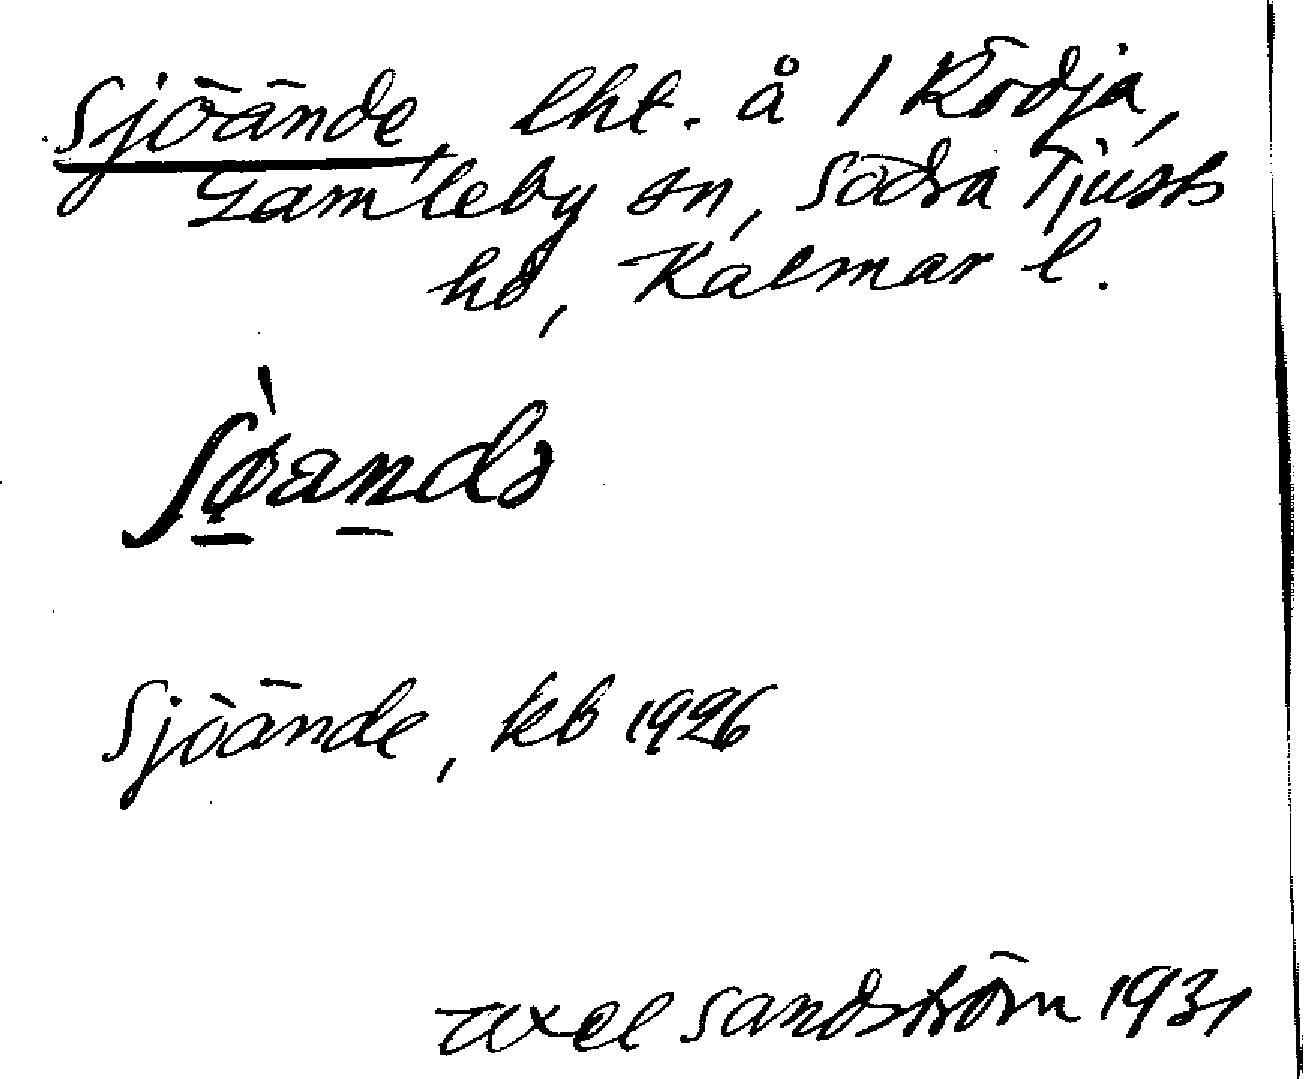 Sjöände, lht. å 1 Rödja,
Gamleby sn, Södra Tjusts
hd, Kalmar l.
ʃø̀andə
Sjöände, kb 1926
Axel Sandström 1931